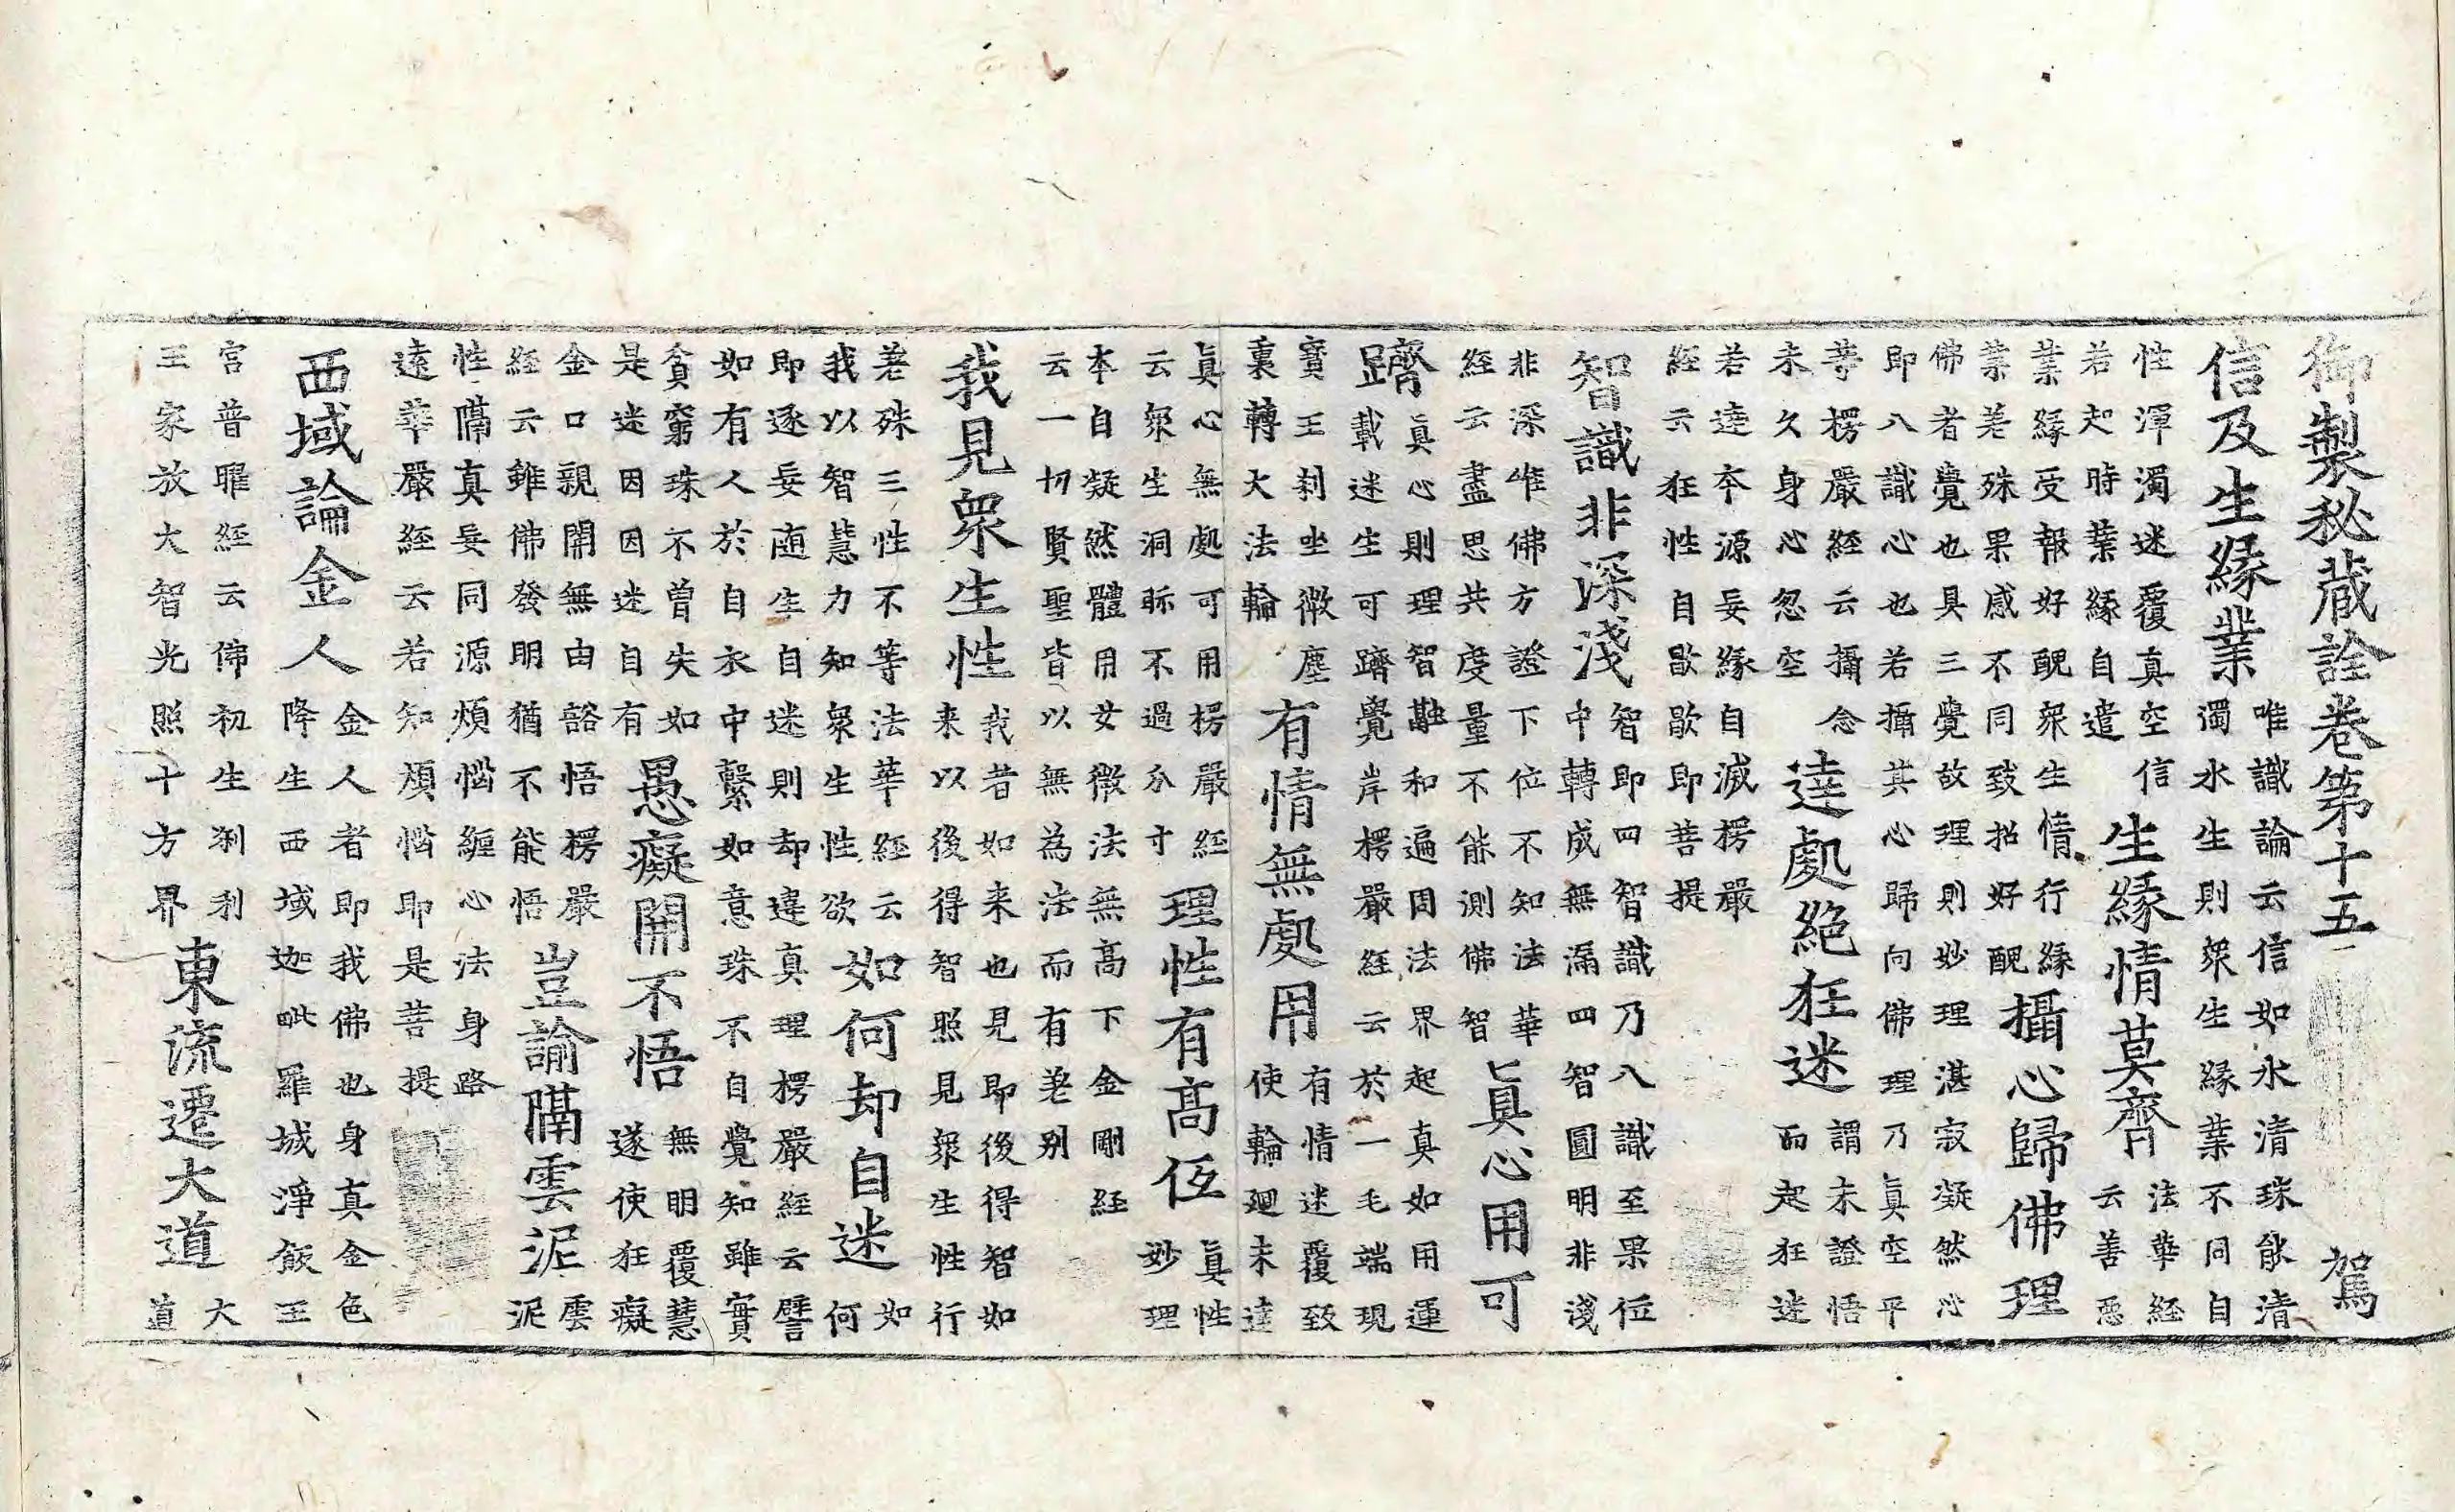 御製秘蔵詮卷第十五　駕
信及生緣業
唯識論云信如水清珠能清
濁水生則衆生緣業不同自
性渾濁迷覆真空信
若起時葉緣自遣
生緣情莫齊
法華經
云善惡
業緣受報好醜衆生情行緣
業差殊果感不同致招好醜
攝心歸佛理
佛者覺也具三覺故理則妙理湛寂凝然心
即八識心也若攝其心歸向佛理乃真空平
等楞嚴經云攝念
未久身心忽空
達處絕狂迷
謂未證悟
而起狂迷
若達本源妄緣自滅楞嚴
經云狂性自歇歇即菩提
智識非深淺
智即四智識乃八識至果位
中轉成無漏四智圓明非淺
非深唯佛方證下位不知法華
經云盡思共度量不能測佛智
真心用可
躋
真心則理智融和遍周法界起真如用運
載迷生可躋覺岸楞嚴經云於一毛端現
寶王刹坐微塵
裏轉大法輪
有情無處用
有情迷覆致
使輪廻未達
真心無處可用楞嚴經
云衆生洞眎不過分寸
理性有高低
真性
妙理
本自凝然體用女微法無高下金剛經
云一切賢聖皆以無為法而有差别
我見衆生性
我者如来也見即後得智如
来以後得智照見衆生性行
差殊三性不等法華經云
我以智慧力知衆生性欲
如何却自迷
如
何
即逐妄随生自迷則却違真理楞嚴經云譬
如有人於自衣中繫如意珠不自覺知雖實
貧窮珠不曾失如
是迷因因迷自有
愚癡開不悟
無明覆慧
遂使狂癡
金口親開無由豁悟楞嚴
經云雖佛發明猶不能悟
豈諭隔雲泥
雲
泥
性隔真妄同源煩惱纏心法身路
遠華嚴經云若知煩惱即是菩提
西域論金人
金人者即我佛也身真金色
降生西域迦毗羅城淨飯王
宮普曜經云佛初生刹利
王家放大智光照十方界
東流遷大道
大
道